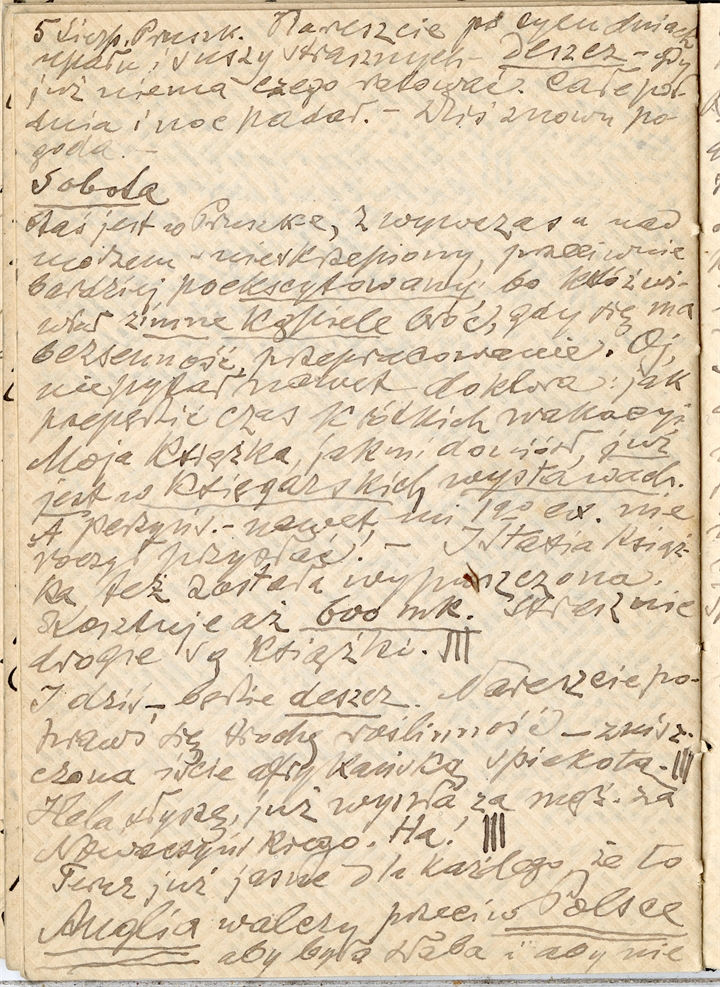 5 Sierp. Pruszk. Nareszcie po tylu dniach
upału i suszy strasznych – deszcz – gdy
już niema czego ratować. Całe poł-
dnia i noc padał. – Dziś znowu po
goda. –
Sobota
Staś jest w Pruszk-e, z wywczasu nad
morzem – nieskrzepiony, przeciwnie
bardziej poekscytowany, bo któż wi-
dział zimne kąpiele brać, gdy się ma
bezsenność, przepracowanie. Oj,
nie pytał nawet doktora: jak
popędzić czas krótkich wakacyj.
Moja książka, jak mi doniósł, już
jest w księgarskich wystawach.
A Perzyńs. – nawet mi ex. nie
raczył przysłać. – I Stasia książ-
ka też została wypuszczona.
Kosztuje aż 600 mk. Strasznie
drogie są książki. |||
I dziś – będzie deszcz. Nareszcie po-
prawi się trochę roślinność – znisz-
czona iście afrykańską spiekotą. |||
Hela, słyszę, już wyszła za mąż. za
Nowaczyńskiego. Ha! |||
Teraz już jasne dla każdego, że to
Anglia walczy przeciw Polsce
aby była słaba i aby nie